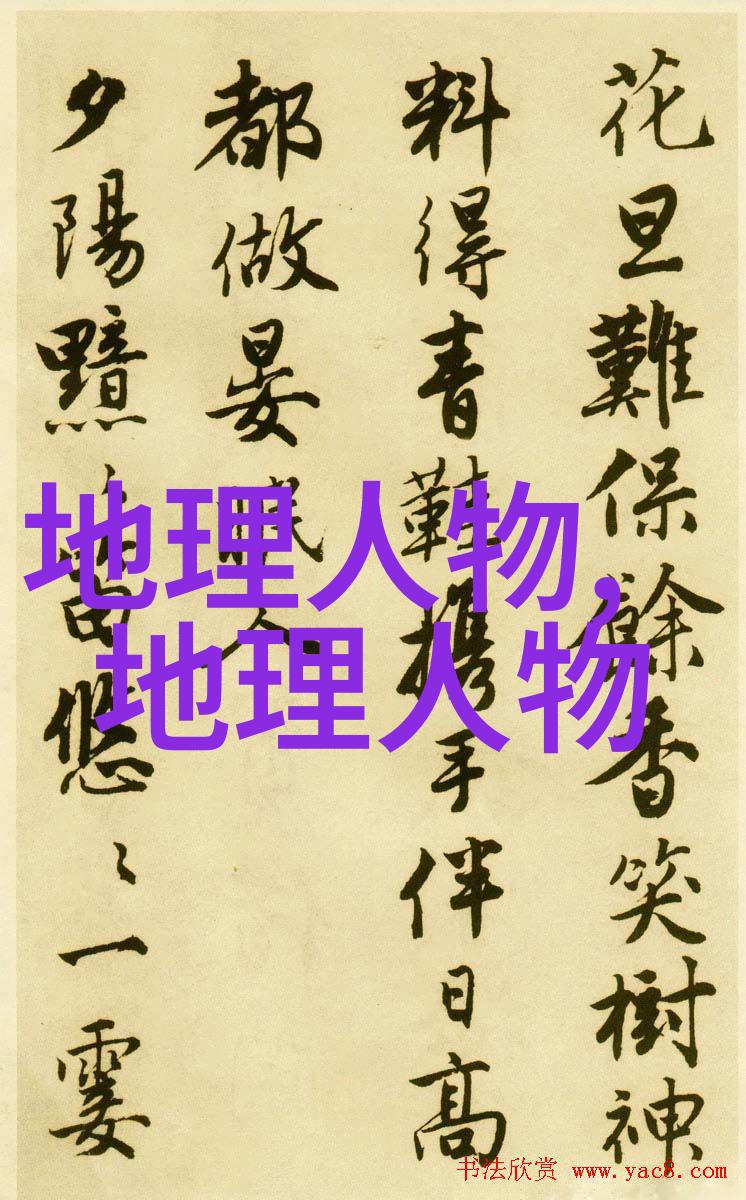 花旦難保餘香笑樹神
料得青鞋携手伴日高
都做晏眠人
夕陽黯〻笛悠〻一霎
地理人物,
地理人物
书法欣赏 www.yac8.com